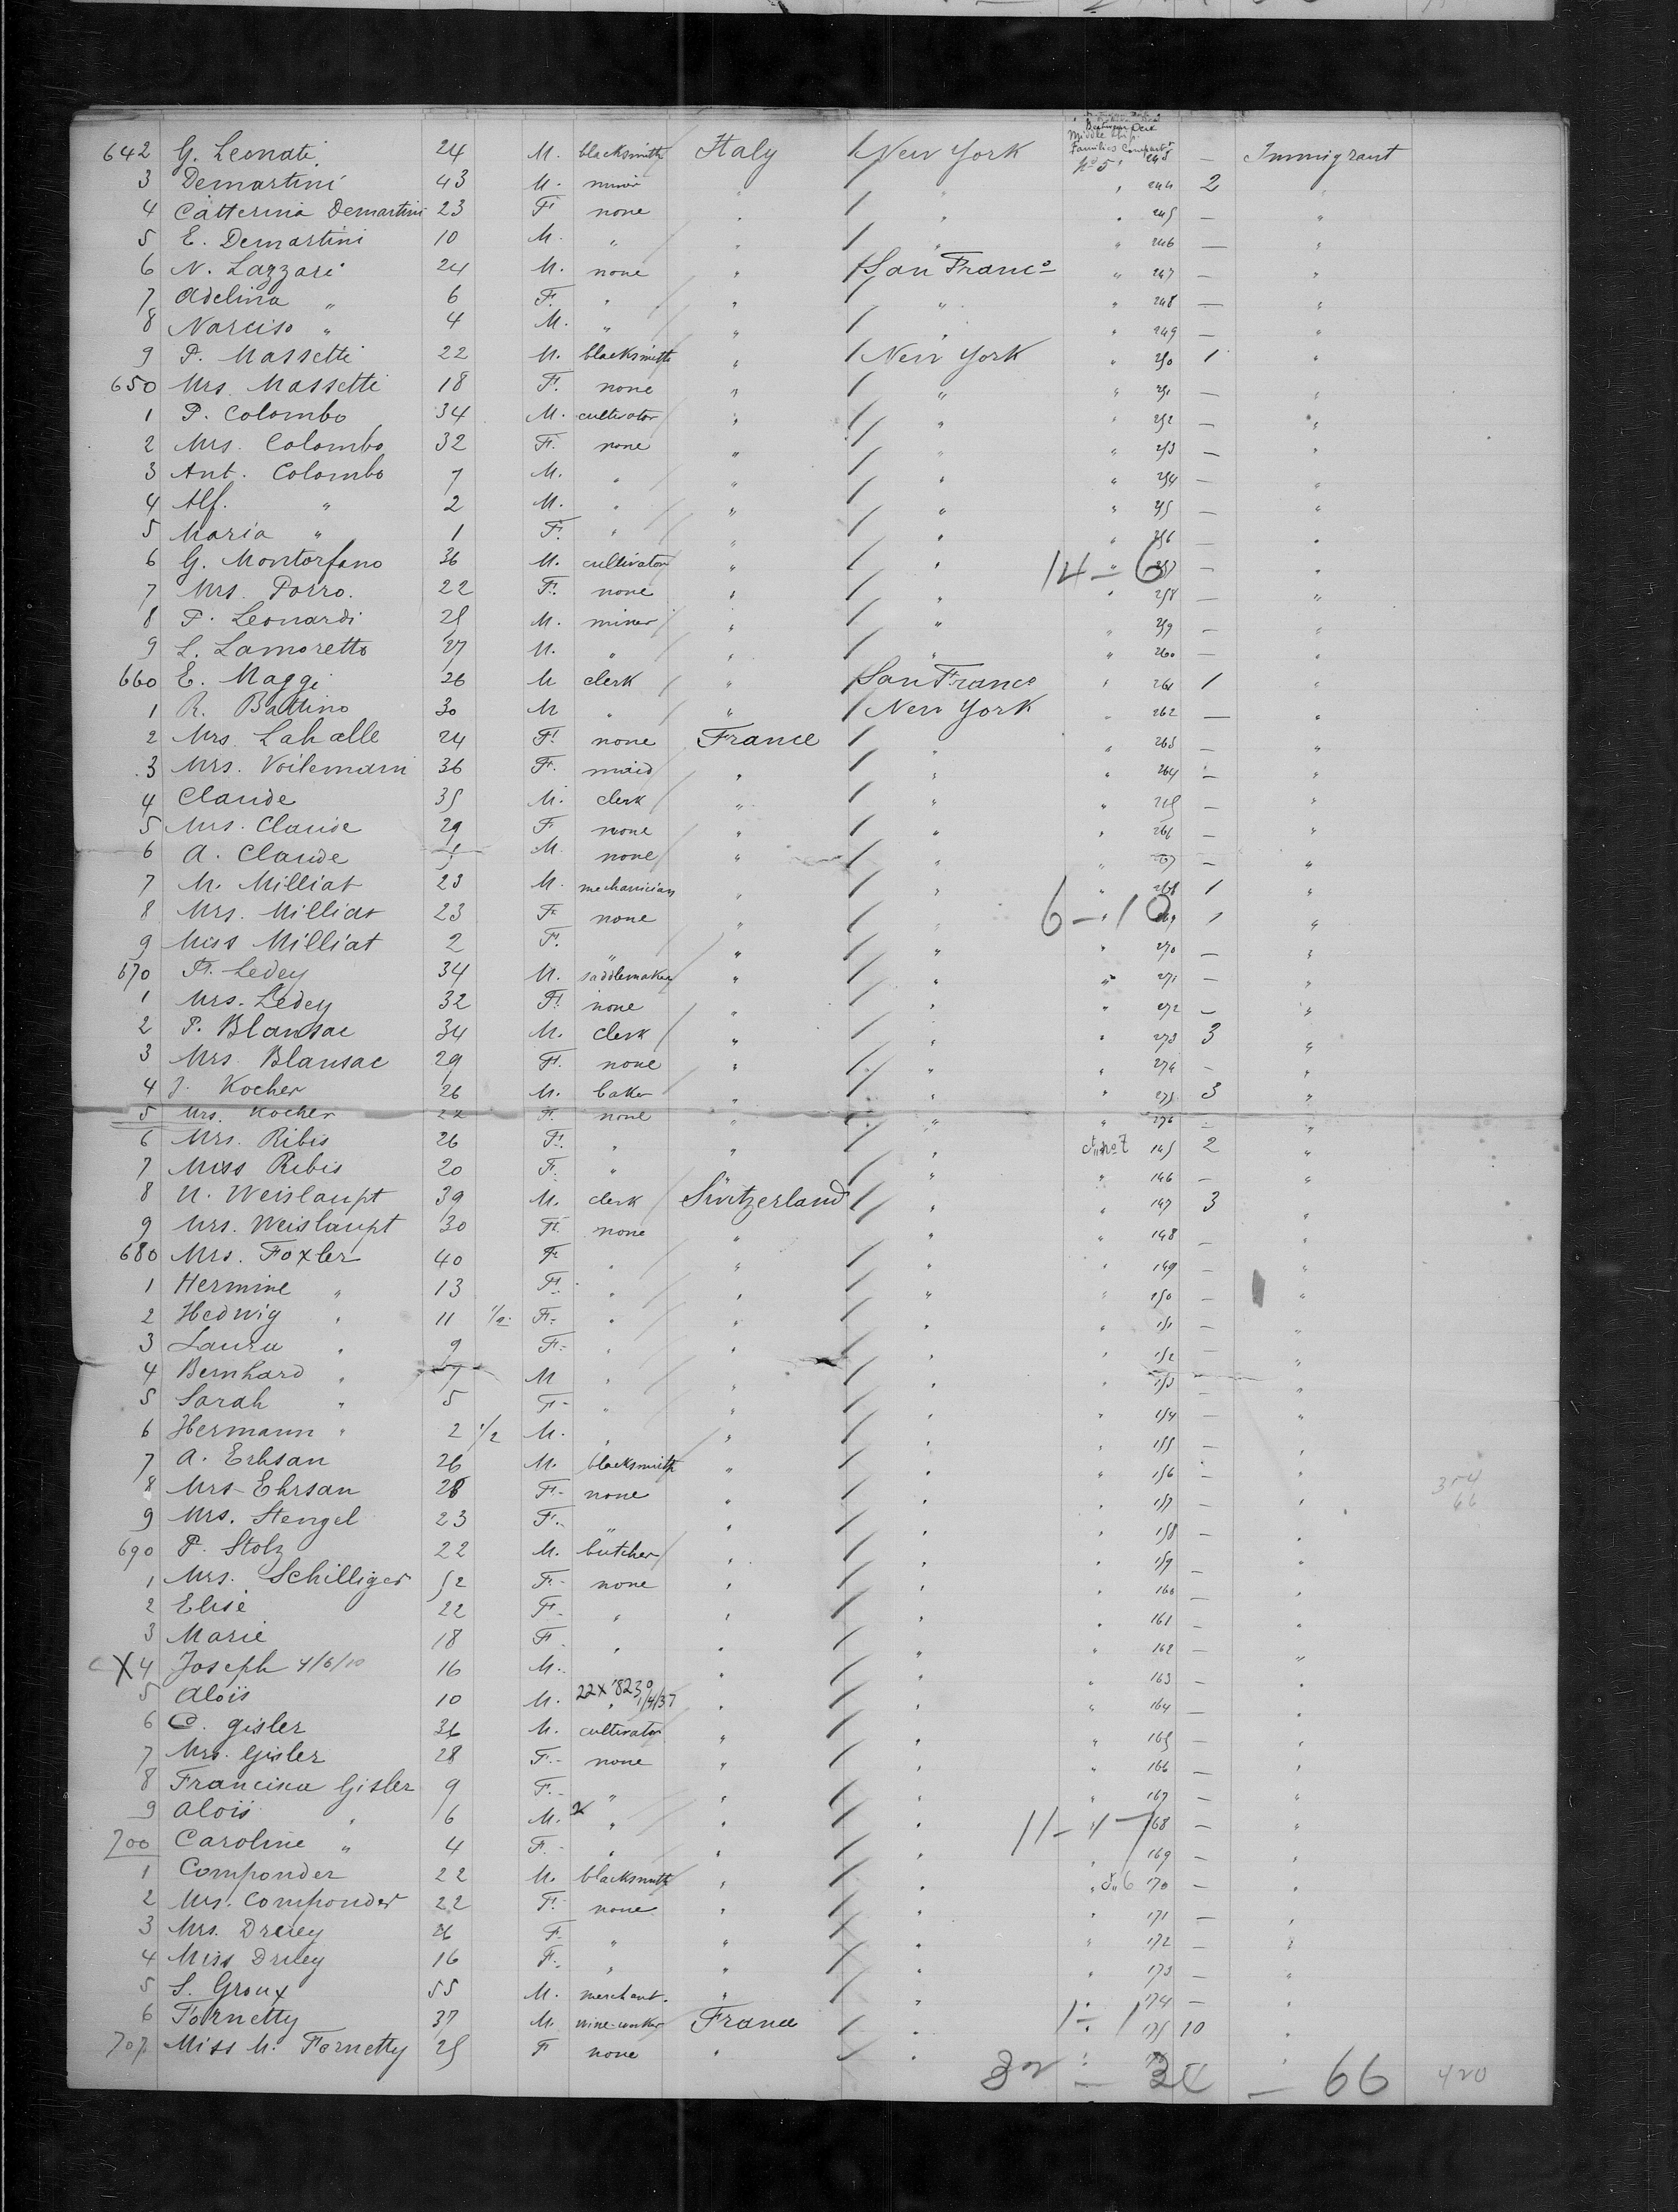 Between Deck
Middle Ship
Families Compart^t
642 G. Leonati 24 M. blacksmith Italy / New York No 5 243 — Immigrant
3 Demartini 43 M. minor " / " " 244 2 "
4 Catterina Demartini 23 F. none " / " " 245 — "
5 E. Demartini 10 M. " " / " " 246 — "
6 N. Lazzari 24 M. none " / San Franco " 247 — "
7 Adelina " 6 F. " " / " " 248 — "
8 Narciso " 4 M. " " / " " 249 — "
9 P. Massetti 22 M. blacksmith " / New York " 250 1 "
650 Mrs. Massetti 18 F. none " / " " 251 — "
1 P. Colombo 34 M. cultivator " / " " 252 — "
2 Mrs. Colombo 32 F. none " / " " 253 — "
3 Ant. Colombo 7 M. " " / " " 254 — "
4 Alf. " 2 M. " " / " " 255 — "
5 Maria " 1 F. " " / " " 256 — "
6 G. Montorfano 36 M. cultivator " / " 14 — 6 " 257 — "
7 Mrs. Porro. 22 F. none " / " " 258 — "
8 P. Leonardi 25 M. miner " / " " 259 — "
9 L. Lamoretto 27 M. " " / " " 260 — "
660 E. Maggi 26 M clerk " / San Franco " 261 1 "
1 R. Battino 30 M " " / New York " 262 — "
2 Mrs. Lahalle 24 F. none France / " " 263 — "
3 Mrs. Voilemain 36 F. maid " / " " 264 — "
4 Claude 35 M. clerk " / " " 265 — "
5 Mrs. Claude 29 F none " / " " 266 — "
6 A. Claude M. none " / " " 267 — "
7 M. Milliat 23 M. mechanician " / " " 268 1 "
8 Mrs. Milliat 23 F. none " / " 6 — 10 " 269 1 "
9 Miss Milliat 2 F. " " / " " 270 — "
670 Fr. Ledey 34 M. saddlemaker " / " " 271 — "
1 Mrs. Ledey 32 F. none " / " " 272 — "
2 P. Blansac 34 M. clerk " / " " 273 3 "
3 Mrs. Blansac 29 F. none " / " " 274 — "
4 J. Kocher 26 M. baker " / " " 275 3 "
5 Mrs. Kocher 22 F. none " / " " 276 — "
6 Mrs. Ribis 26 F. " " / " No 7 145 2 "
7 Miss Ribis 20 F. " " / " " 146 — "
8 U. Weislaupt 39 M. clerk Switzerland / " " 147 3 "
9 Mrs. Weislaupt 30 F. none " / " " 148 — "
680 Mrs. Foxler 40 F " " / " " 149 — "
1 Hermine " 13 F. " " / " " 150 — "
2 Hedwig " 11 1/2 F. " " / " " 151 — "
3 Laura " 9 F. " " / " " 152 — "
4 Bernhard " 7 M " " / " " 153 — "
5 Sarah " 5 F " " / " " 154 — "
6 Hermann " 2 1/2 M. " " / " " 155 — "
7 A. Erhsan 26 M. blacksmith " / " " 156 — "
354
8 Mrs Ehrsan 28 F. none " / " " 157 — "
66
9 Mrs. Stengel 23 F. " " / " " 158 — "
690 P. Stolz 22 M. butcher " / " " 159 — "
1 Mrs. Schilliger 52 F. none " / " " 160 — "
2 Elise 22 F. " " / " " 161 — "
3 Marie 18 F " " / " " 162 — "
X 4 Joseph 4/6/10 16 M. " / " " 163 — "
22X 8230 1/4/37
5 Alois 10 M. " " / " " 164 — "
6 C. Gisler 36 M. cultivator " / " " 165 — "
7 Mrs. Gisler 28 F. none " / " " 166 — "
8 Francisca Gisler 9 F. " " / " " 167 — "
9 Alois " 6 M. X " " / " 11 — 7 " 168 — "
700 Caroline " 4 F. " " / " " 169 — "
1 Componder 22 M. blacksmith " / " 6 170 — "
2 Mrs. Componder 22 F. none " / " " 171 — "
3 Mrs. Druey 26 F. " " / " " 172 — "
4 Miss Druey 16 F. " " / " " 173 — "
5 S. Groux 55 M. merchant. " / " " 174 — "
6 Fornetty 37 M. France / " 1 — 1 " 175 10 "
707 Miss M. Fornetty 25 F none " / " "
32 — 34 — 66 420